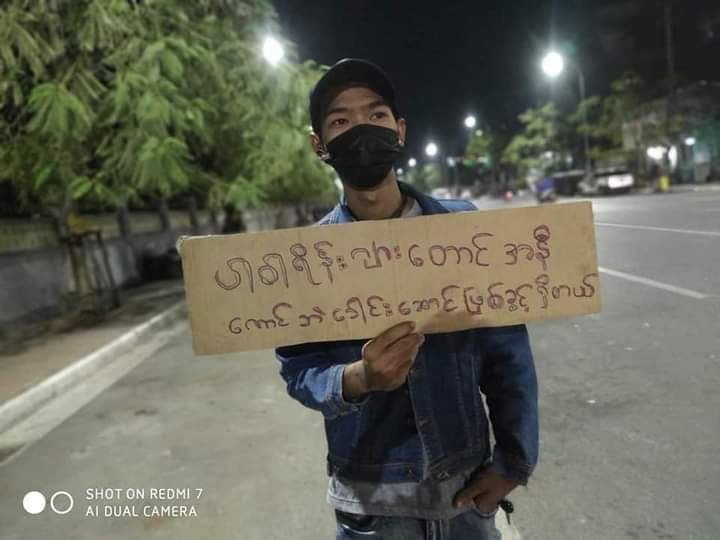 ပါဝါရိန်းဂျားတောင် အနီ
ကောင် ဘဲ ခေါင်းဆောင် ဖြစ်ခွင့် ရှိတယ်
SHOT ON REDMI 7
AI DUAL CAMERA